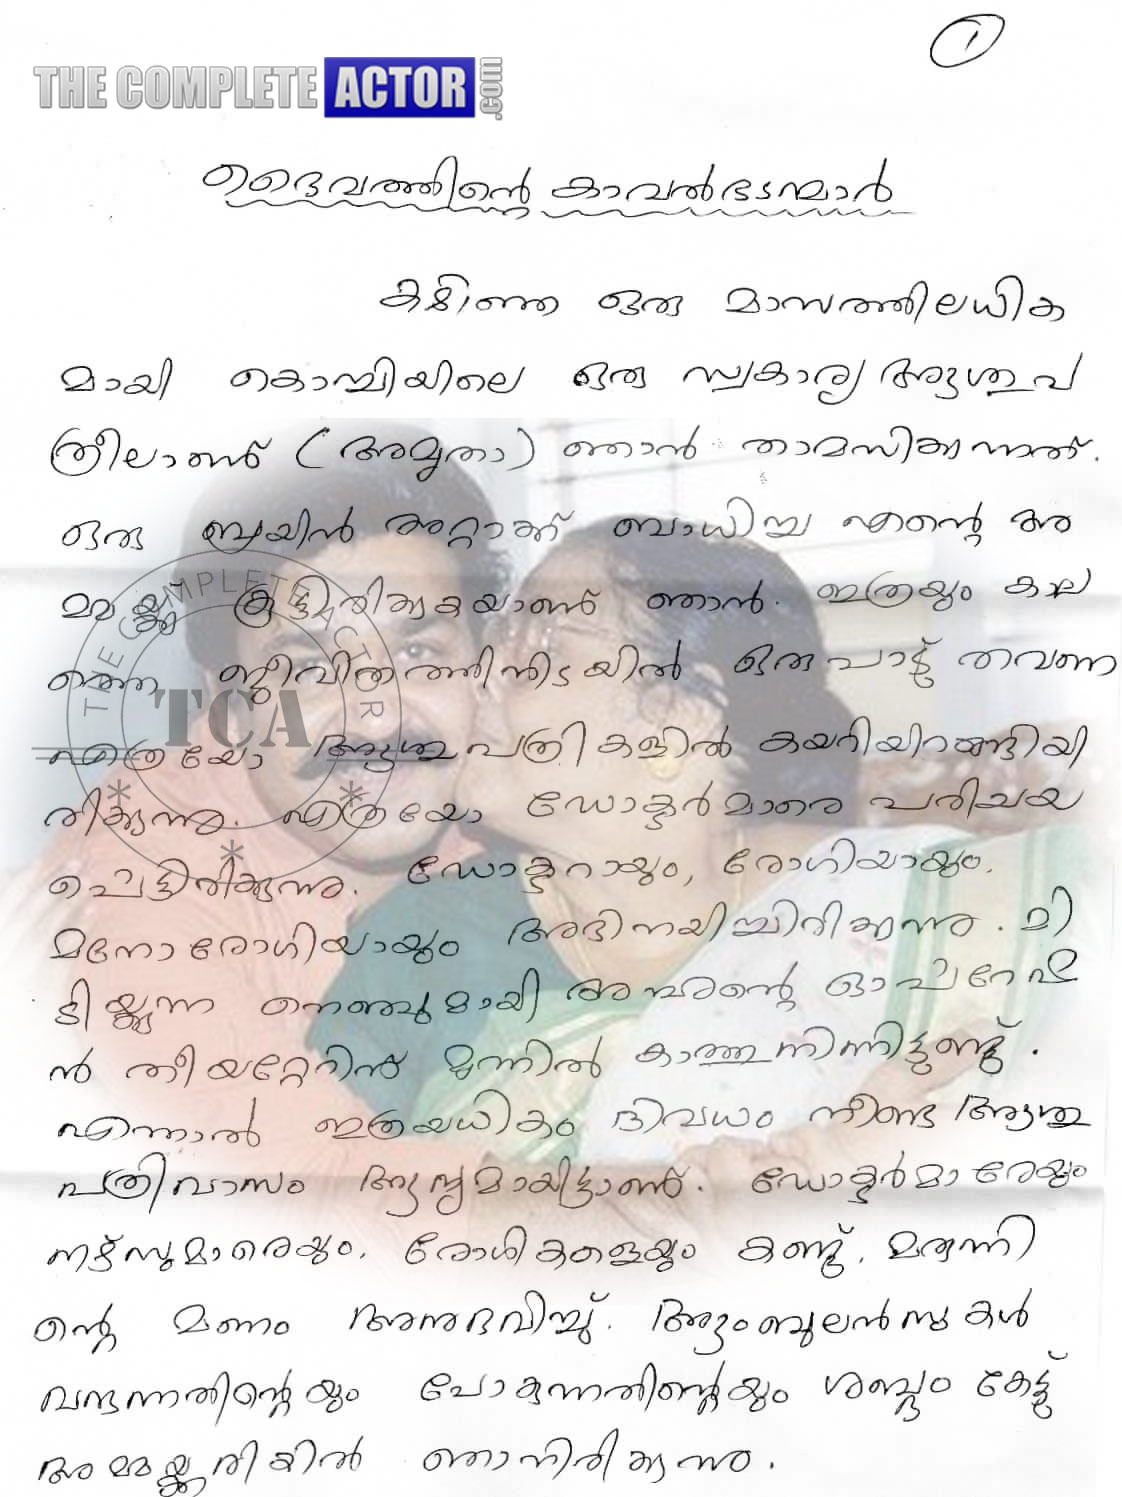 1
THE COMPLETE ACTOR .com
ദൈവത്തിന്റെ കാവൽഭടന്മാർ
കഴിഞ്ഞ ഒരു മാസത്തിലധിക
മായി കൊച്ചിയിലെ ഒരു സ്വകാര്യ ആശുപ
ത്രീലാണ് (അമൃതാ) ഞാൻ താമസിക്കുന്നത്.
ഒരു ബ്രയിൻ അറ്റാക്ക് ബാധിച്ച എന്റെ അ
മ്മയ്ക്കു കൂട്ടിരിക്കുകയാണ് ഞാൻ. ഇത്രയും കാല
ത്തെ ജീവിതത്തിനിടയിൽ ഒരുപാട് തവണ
എത്രയോ ആശുപത്രികളിൽ കയറിയിറങ്ങിയി
രിക്കുന്നു. എത്രയോ ഡോക്ടർമാരെ പരിചയ
പ്പെട്ടിരിക്കുന്നു. ഡോക്ടറായും, രോഗിയായും,
മനോരോഗിയായും അഭിനയിച്ചിരിക്കുന്നു. മി
ടിയ്ക്കുന്ന നെഞ്ചുമായി അച്ഛന്റെ ഓപ്പറേഷ
ൻ തീയറ്റേറിന് മുന്നിൽ കാത്തുനിന്നിട്ടുണ്ട്.
എന്നാൽ ഇത്രയധികം ദിവസം നീണ്ട ആശു
പത്രിവാസം ആദ്യമായിട്ടാണ്. ഡോക്ടർമാരേയും
നഴ്സുമാരെയും, രോഗികളെയും കണ്ട്, മരുന്നി
ന്റെ മണം അനുഭവിച്ച്. ആംബുലൻസുകൾ
വരുന്നതിന്റെയും പോകുന്നതിന്റെയും ശബ്ദം കേട്ട്
അമ്മയ്ക്കരികിൽ ഞാനിരിക്കുന്നു.
THE COMPLETE ACTOR
TCA